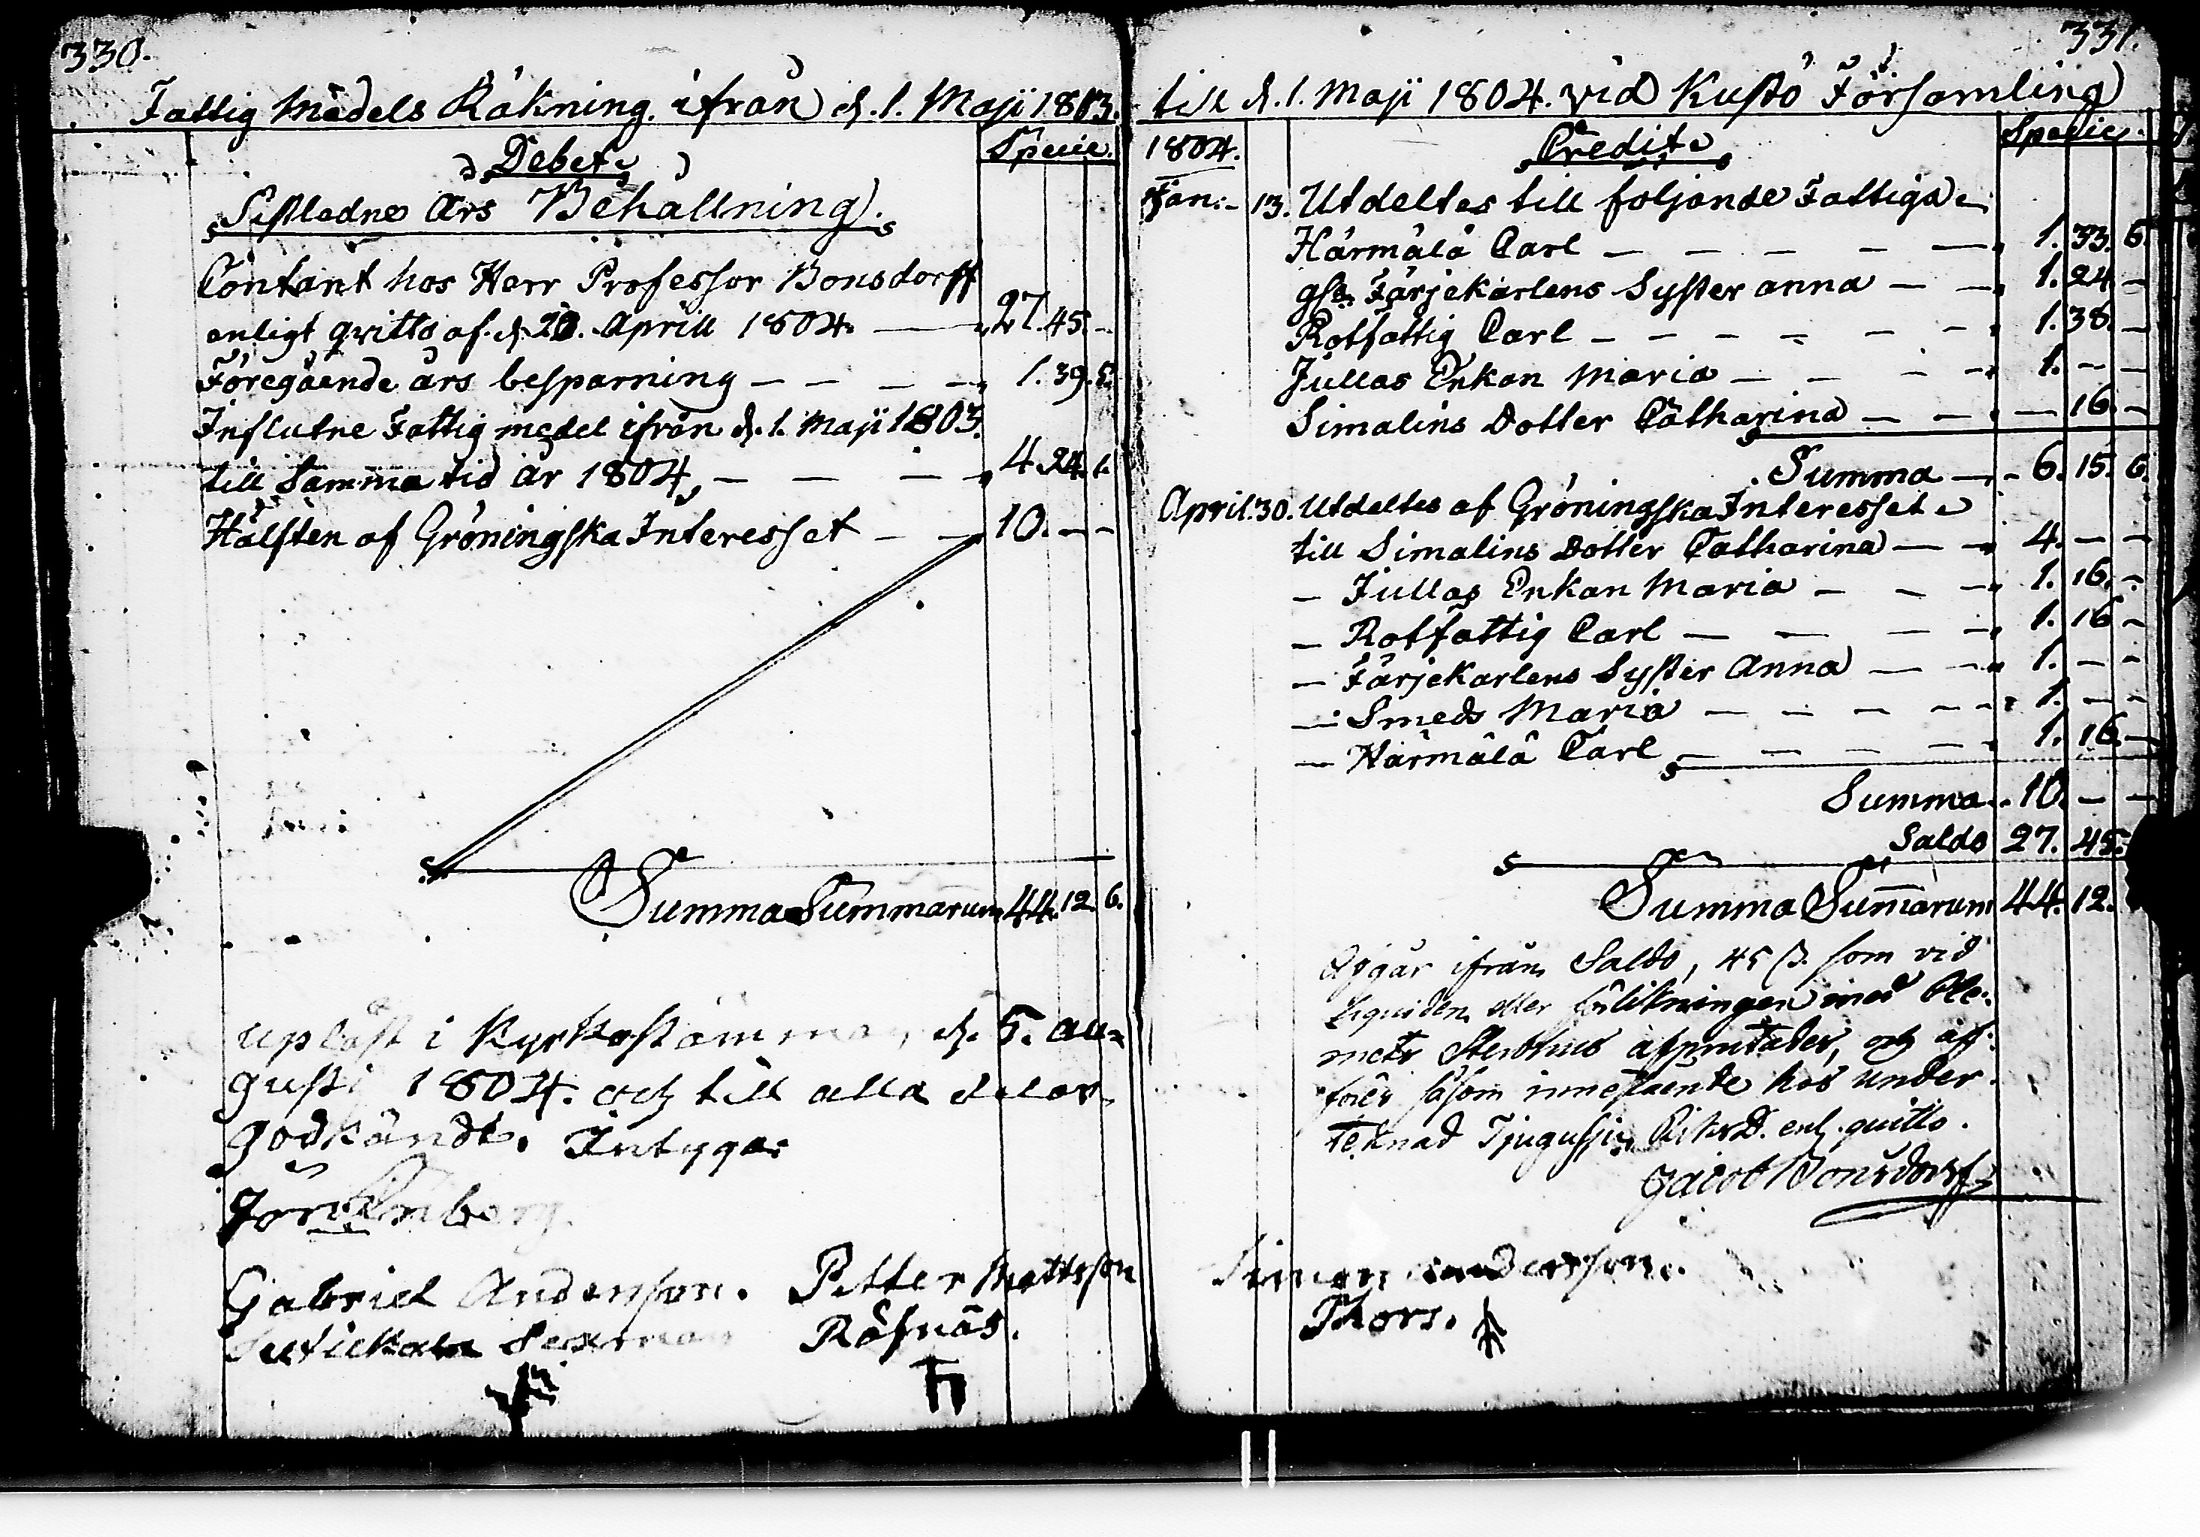 330.
Fattig Medels Räkning ifrån d. 1. Maji 1803.
Debet
Specie.
Sistledne Års Behållning.
Contant hos Herr Professor Bonsdorff
enligt qvitto af d. 20. Aprill 1804. — 27. 45. -
Föregående års besparning — — — — 1. 39. 5.
Influtne Fattig medel ifrån d. 1. Maji 1803.
till Samma tid år 1804, — — — — 4. 24. 1.
Hälften af Gröningska Interesset — — 10. — —
Summa Summarum 44. 12. 6.
Upläst i Kyrkostämman, d. 5. Au-
gusti 1804. och till alla delar
godkändt. Intygar
Gabriel Andersson. Petter Mattsson
Sexman Räfnäs.
331.
till d. 1. Maji 1804. vid Kustö Församling
1804. Credit Specie.
Jan: - 13. Utdeltes till följande Fattiga
Härmälä Carl — — — — — 1. 33. 6.
gse. Färjekarlens Syster Anna — — 1. 24 —
Rotfattig Carl — — — — — — 1. 38. —
Jullas Enkan Maria — — — — 1. — —
Simalins Dotter Catharina — — — 16. —
Summa — 6. 15. 6.
April. 30. Utdeltes af Gröningska Interesset
till Simalins Dotter Catharina — — 4. — —
— Jullas Enkan Maria — — — 1. 16. —
— Rotfattig Carl — — — — 1. 16 —
— Färjekarlens Syster Anna — — 1. — —
— Smeds Maria — — — — — 1. — —
— Härmälä Carl — — — — — 1. 16. —
Summa 10. — —
Saldo 27. 45.
Summa Sum̄arum 44. 12.
Afgår ifrån Saldo, 45 ß. som vid
Liquiden eller förlikningen med Cle-
mets Sterbhus afprutades, och åter-
såsom innestående hos under-
teknad Tjugusju RiksD. enl. quitto.
Jacob Bonsdorff
Simon Andersson.
Thors.